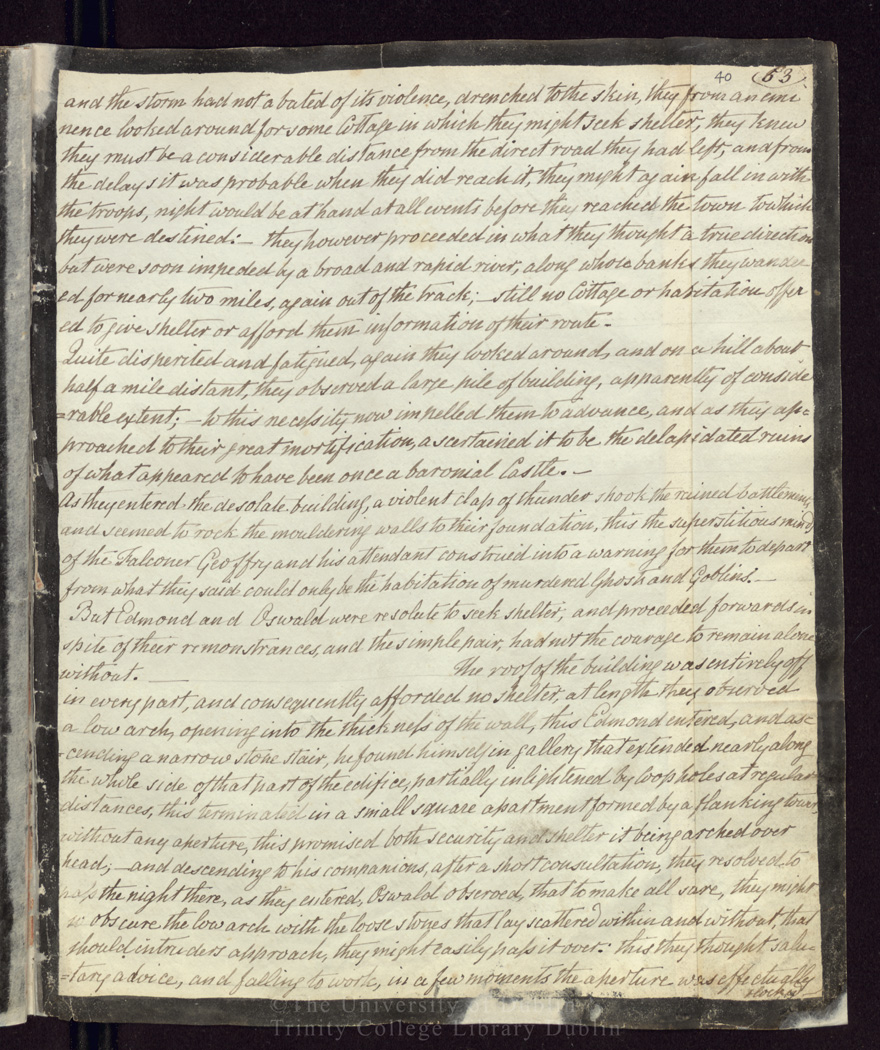 40 (53)
and the storm had not abated of its violence, drenched to the skin, they from an emi
nence looked around for some Cottage in which they might seek shelter, they knew
they must be a considerable distance from the direct road they had left, and from
the delays it was probable when they did reach it, they might again fall in with
the troops, night would be at hand at all events before they reached the town to which
they were destined:- they however proceeded in what they thought a true direction
but were soon impeded by a broad and rapid river, along whose banks they wander
ed for nearly two miles, again out of the track;- still no Cottage or habitation offer
ed to give shelter or afford them information of their route-
Quite dispirited and fatigued, again they looked around, and on a hill about
half a mile distant, they observed a large pile of building, apparently of conside
=rable extent;- to this necessity now impelled them to advance, and as they ap=
proached to their great mortification, ascertained it to be the delapidated ruins
of what appeared to have been once a baronial Castle.-
As they entered the desolate building, a violent clap of thunder shook the ruined battlements,
and seemed to rock the mouldering walls to their foundation, this the superstitious minds
of the Falconer Geoffry and his attendant construed into a warning for them to depart
from what they said could only be the habitation of murdered Ghosts and Goblins.-
But Edmond and Oswald were resolute to seek shelter, and proceeded forwards in
spite of their remonstrances, and the simple pair, had not the courage to remain alone
without. — The roof of the building was entirely off
in every part, and consequently afforded no shelter, at length they observed
a low arch, opening into the thickness of the wall, this Edmond entered, and as=
=cending a narrow stone stair, he found himself in gallery that extended nearly along
the whole side of that part of the edifice, partially inlightened by loop holes at regular
distances, this terminated in a small square apartment formed by a flanking tower,
without any aperture, this promised both security and shelter it being arched over
head;- and descending to his companions, after a short consultation, they resolved to
pass the night there, as they entered, Oswald observed, that to make all sure, they might
so obscure the low arch with the loose stones that lay scattered within and without, that
should intruders approach, they might easily pass it over: this they thought salu=
=tary advice, and falling to work, in a few moments the aperture was effectually
blocked
© The University of Dublin
Trinity College Library Dublin